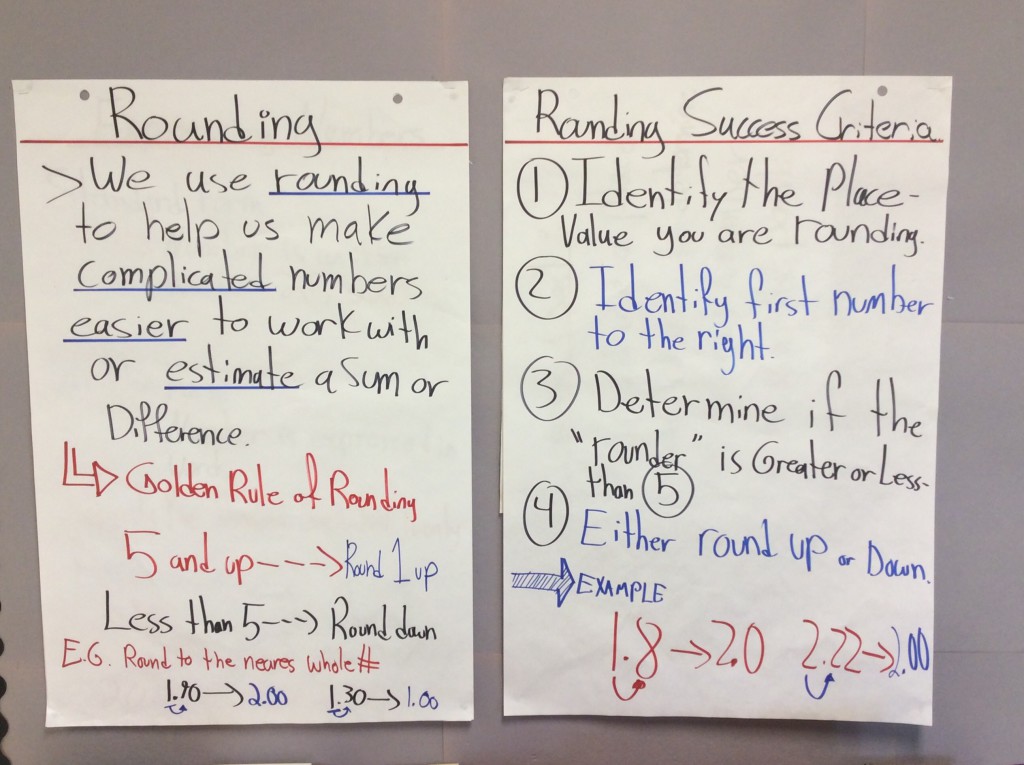 Rounding
> We use rounding
to help us make
complicated numbers
easier to work with
or estimate a Sum or
Difference.
Golden Rule of Rounding
5 and up ----> Round 1 up
Less than 5 ---> Round down
E.G. Round to the neares whole #
1.90 → 2.00 1.30 → 1.00
Rounding Success Criteria
① Identify the Place-
Value you are rounding.
② Identify first number
to the right.
③ Determine if the
"rounder" is Greater or Less-
than ⑤
④ Either round up or Down.
EXAMPLE
1.8 → 2.0 2.22 → 2.00